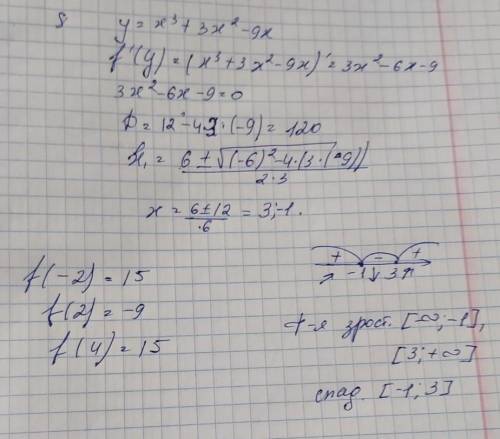 8
y = x³ + 3x² - 9x
f'(y) = (x³ + 3x² - 9x)' = 3x² - 6x - 9
3x² - 6x - 9 = 0
D = 12² - 4 · (-9) = 120
x₁ = 6 ± √(-6)² - 4·(3·(-9)) / 2·3
x = 6 ± 12 / ·6 = 3; -1.
+ - +
-1 3
f(-2) = 15
f(2) = -9
f(4) = 15
ф-я зрост. [∞; -1],
[3; +∞]
спад. [-1; 3]